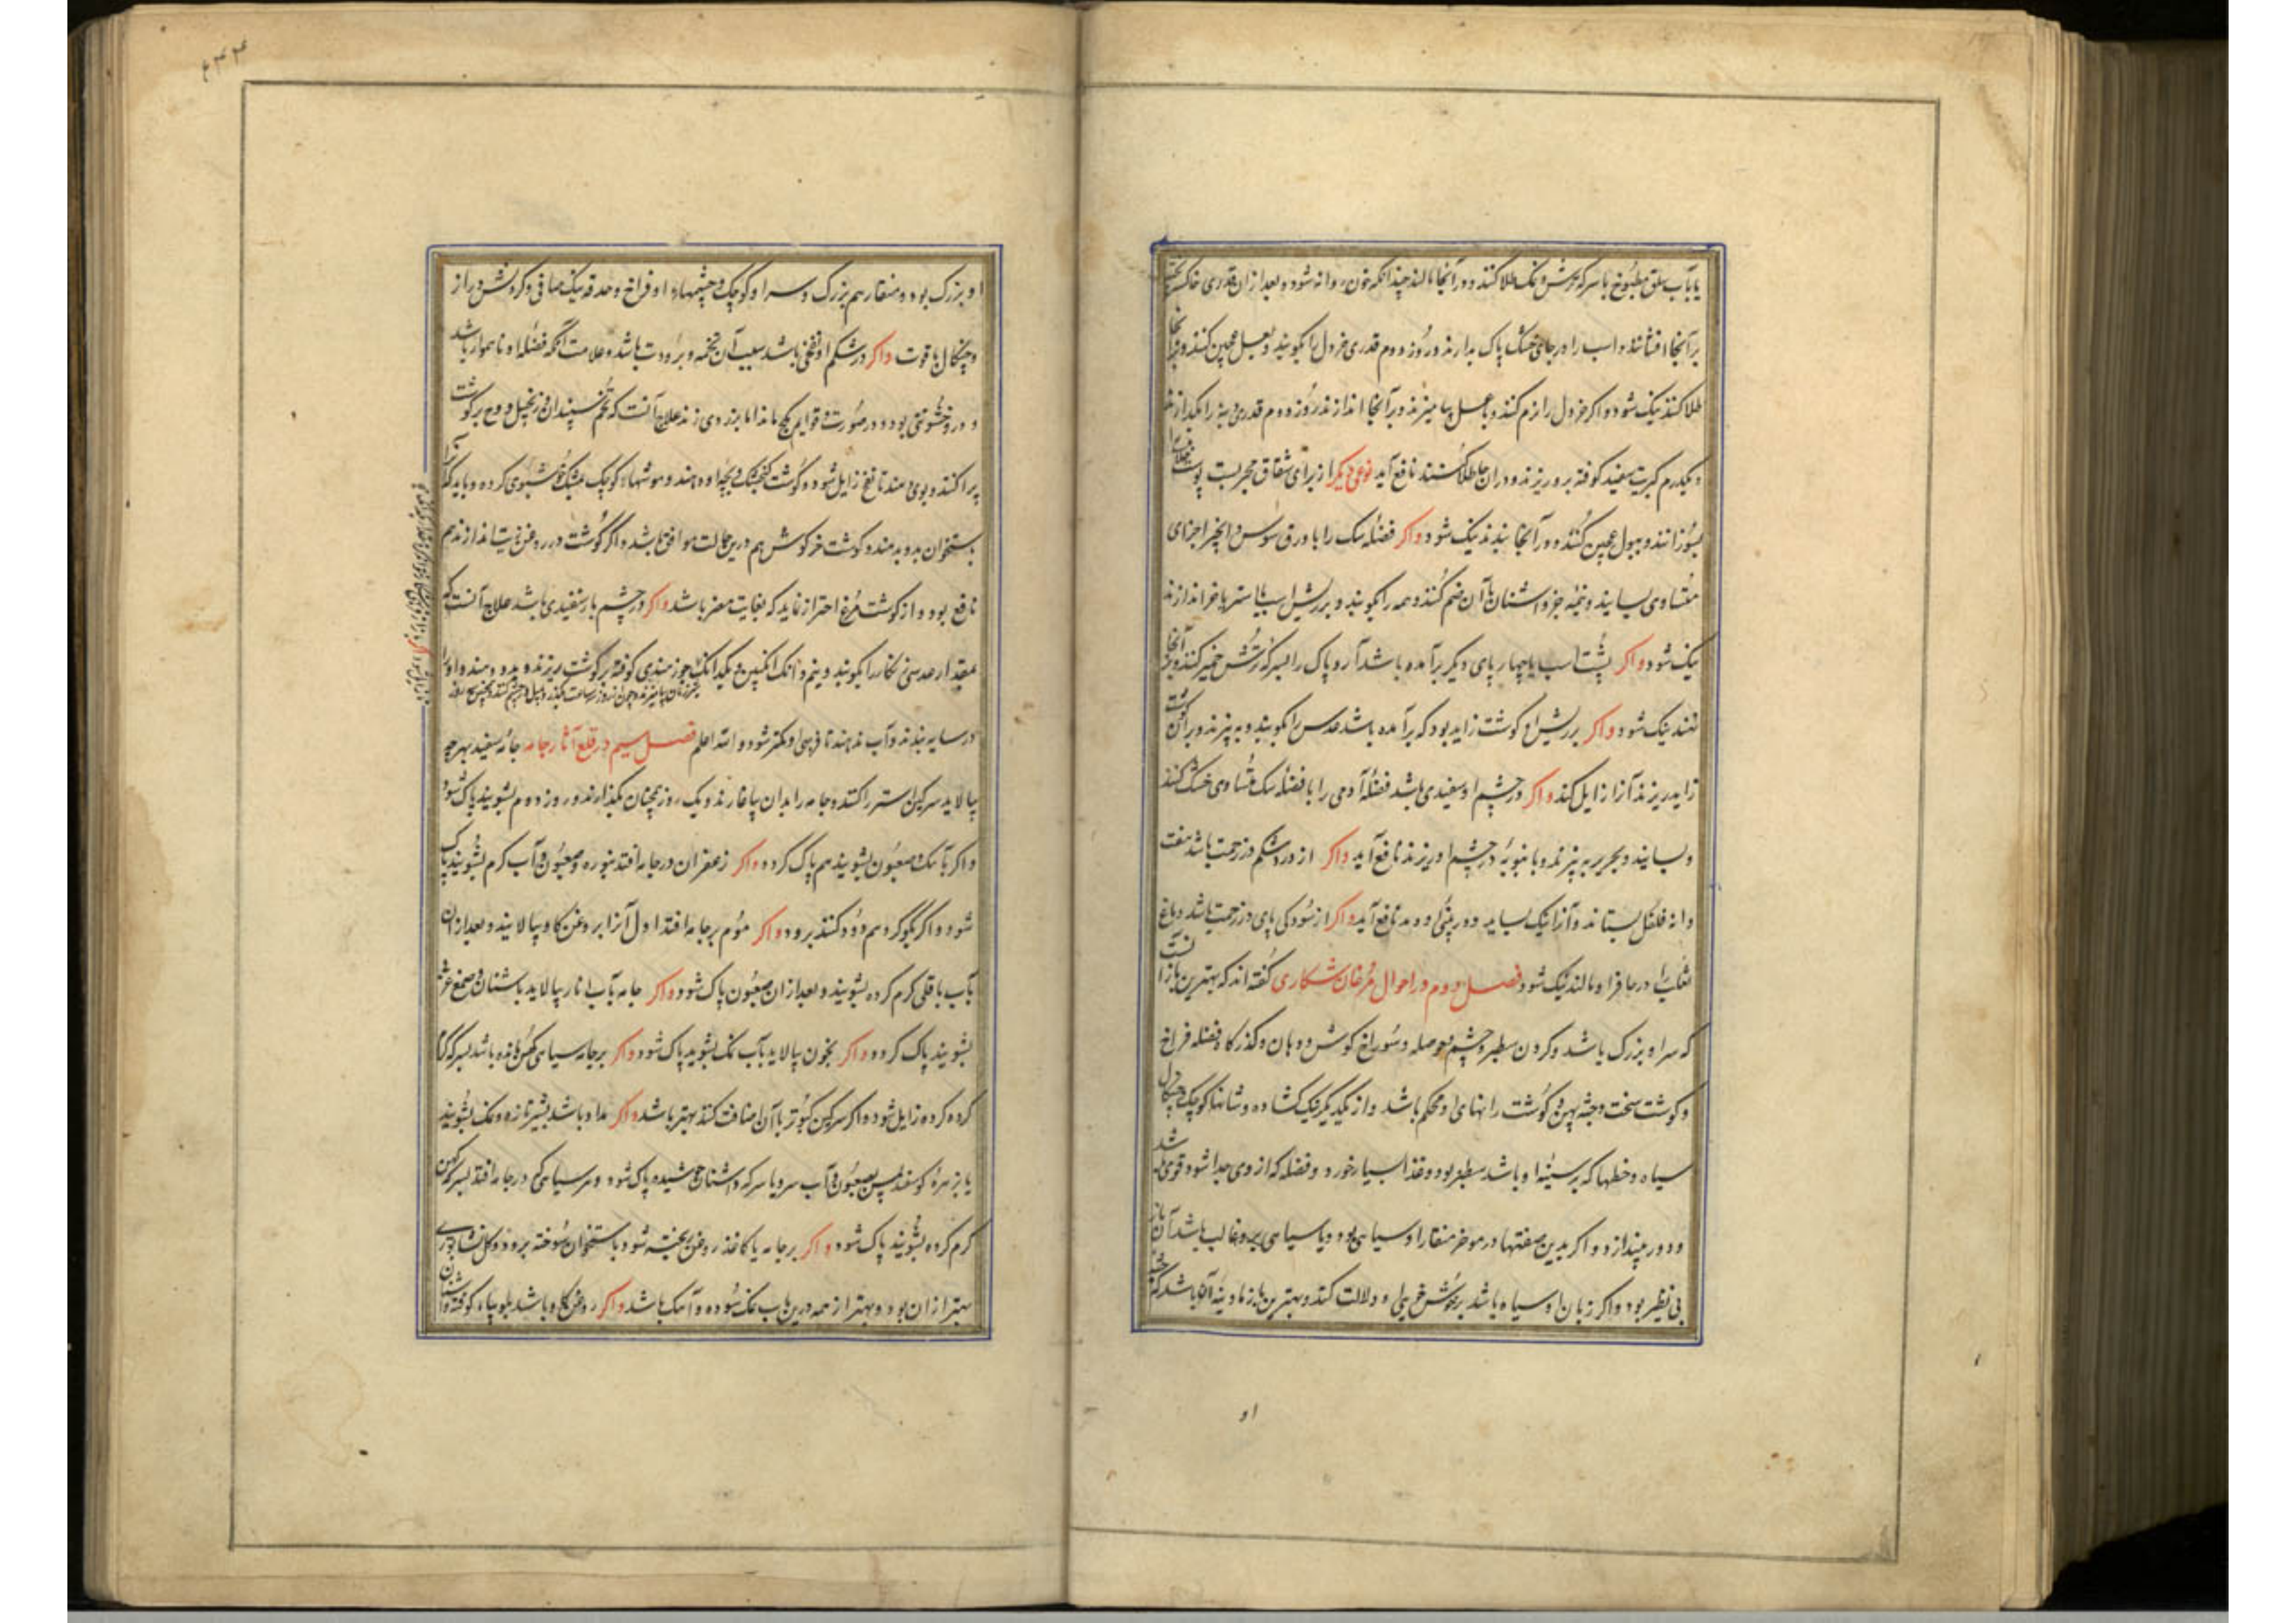 یا بآب سلق مطبوخ با سرکه ترش و نمک طلا کنند و در آنجا مالند چندانکه خون روانه شود و بعد از ان قدری خاکستر
بر آنجا افشانند و اسب را در جای خشک پاک بدارند و روز دوم قدری خردل را بکوبند و بعسل عجین کنند و بر آنجا
طلا کنند نیک شود و اکر خردل را نرم کنند و با عسل بیامیزند و بر آنجا اندازند روز دوم قدری پیه را بکدازند
و یکدرم کبریت سفید کوفته برو ریزند و در ان جا طلا کنند نافع آید نوعی دیکر از برای شقاق مجربست پوست
بسوزانند و ببول عجین کنند و در آنجا بندند نیک شود و اکر فضلۀ سک را با ورق سوس و انجیر اجزای
متساوی بسایند و نیمۀ جزو اشنان با آن ضم کنند و همه را بکوبند و بر ریش اسب یا استر یا خر اندازند
نیک شود و اکر پشت اسب یا چهارپای دیکر برآمده باشد آرد پاک را بسرکه ترش خمیر کنند و بر آنجا
نهند نیک شود و اکر بر ریش او کوشت زاید بود که برآمده باشد عدس را بکوبند و به پزند و بر آن کوشت
زاید ریزند آنرا زایل کند و اکر در چشم او سفیدی باشد فضلۀ آدمی را با فضلۀ سک متساوی خشک کنند
و بسایند و بحریر به پزند و با نبوبه در چشم او ریزند نافع آید و اکر از درد شکم در زحمت باشد هفت
دانه فلفل بستاند و آنرا نیک بساید و در بینی او دمد نافع آید و اکر از سودکی پای در زحمت باشد دماغ
ثعلب را در حافر او مالند نیک شود فصل دوم در احوال مرغان شکاری کفته اند که بهترین بازها آنست
که سر او بزرک باشد و کردن سطبر و چشم و حوصله و سوراخ کوش و دهان و کذرکاه فضله فراخ
و کوشت سخت و جثه پهن و کوشت رانهای او محکم باشد و از یکدیکر نیک کشاده و شانها کوچک و چنکال
سیاه و خطها که بر سینۀ او باشد سطبر بود و غذا بسیار خورد و فضله که از وی جدا شود قوی باشد
و دور بیندازد و اکر بدین صفتها در موخر منقار او سیاهی بود و یا سیاهی برو غالب باشد آن باز
بی نظیر بود و اکر زبان او سیاه باشد بر خوش خویی او دلالت کند و بهترین باز مادینه آن باشد که جثۀ
او
۲۴۴
او بزرک بود و منقار هم بزرک و سر او کوچک و چشمهاء او فراخ و حدقه نیک صافی و کردنش دراز
و چنکال با قوت و اکر در شکم او نفخی باشد سبب آن تخمه و برودت باشد و علامت آنکه فضلۀ او ناهموار باشد
و درو خشونتی بود و در صورت و قوایم کج ماند اما بزودی زند علاج آنست که تخم سپندان و زنجبیل و وج بر کوشت
پراکنند و بوی دهند تا نفخ زایل شود و کوشت کنجشک و بچۀ او دهند و موشهاء کوچک بمشک خوشبوی کرده و باید که آنرا
باستخوان بدو بدهند و کوشت خرکوش هم درین حالت موافق باشد و اکر کوشت در روغن زیت اندازند هم
نافع بود و از کوشت مرغ احتراز نماید که بغایت مضر باشد و اکر در چشم باز سفیدی باشد علاج آنست که
بمقدار عدسی نکار را بکوبند و نیم دانک انکبین و یکدانک جوز هندی کوفته بر کوشت ریزند و بدو دهند و او را
در سایه بندند و آب ندهند تا فربهی او کمتر شود و الله اعلم فصل سیم در قلع آثار جامه جامۀ سفید بهرچه
بیالاید سرکین استر را کنند و جامه را بدان بیاغارند و یک روز همچنان بکذارند و روز دوم بشویند پاک شود
و اکر بآهک و صعبون بشویند هم پاک کردد و اکر زعفران در جامه افتد بنوره و صعبون و آب کرم بشویند پاک
شود و اکر بکوکرد هم دود کنند برود و اکر موم بر جامه افتد اول آنرا بروغن کاو بیالایند و بعد از ان
بآب باقلی کرم کرده بشویند و بعد از ان صعبون پاک شود و اکر جامه بآب انار بیالاید باشنان و صمغ عربی
بشویند پاک کردد و اکر بخون بیالاید بآب نمک بشویند پاک شود و اکر بر جامه سیاهی کهن مانده باشد بسرکه کرم
کرده کرده زایل شود و اکر سرکین کبوتر با آن اضافت کنند بهتر باشد و اکر مداد باشد بشیر تازه و نمک بشویند
یا بزهرۀ کوسفند پس بصعبون و آب سرد یا سرکه و اشنان جوشیده پاک شود و هر سیاهی که در جامه افتد بسرکه کهن
کرم کرده بشویند پاک شود و اکر بر جامه یا کاغذ روغن ریخته شود باستخوان سوخته برود و کل نشابوری
بهتر از ان بود و بهتر از همه درین باب نمک سوده و آهک باشد و اکر روغن کاو باشد بلوبیاء کوفته و اشنان